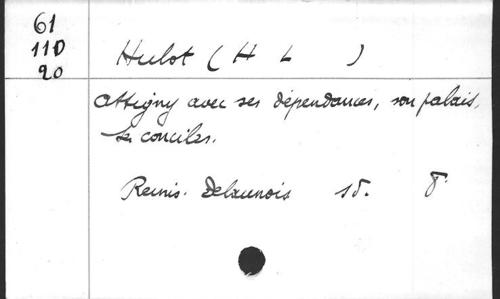 61
11D
20
Hulot (H L )
Attigny avec ses dépendances, son palais,
ses conciles.
Reims. Delaunois sd. 8°